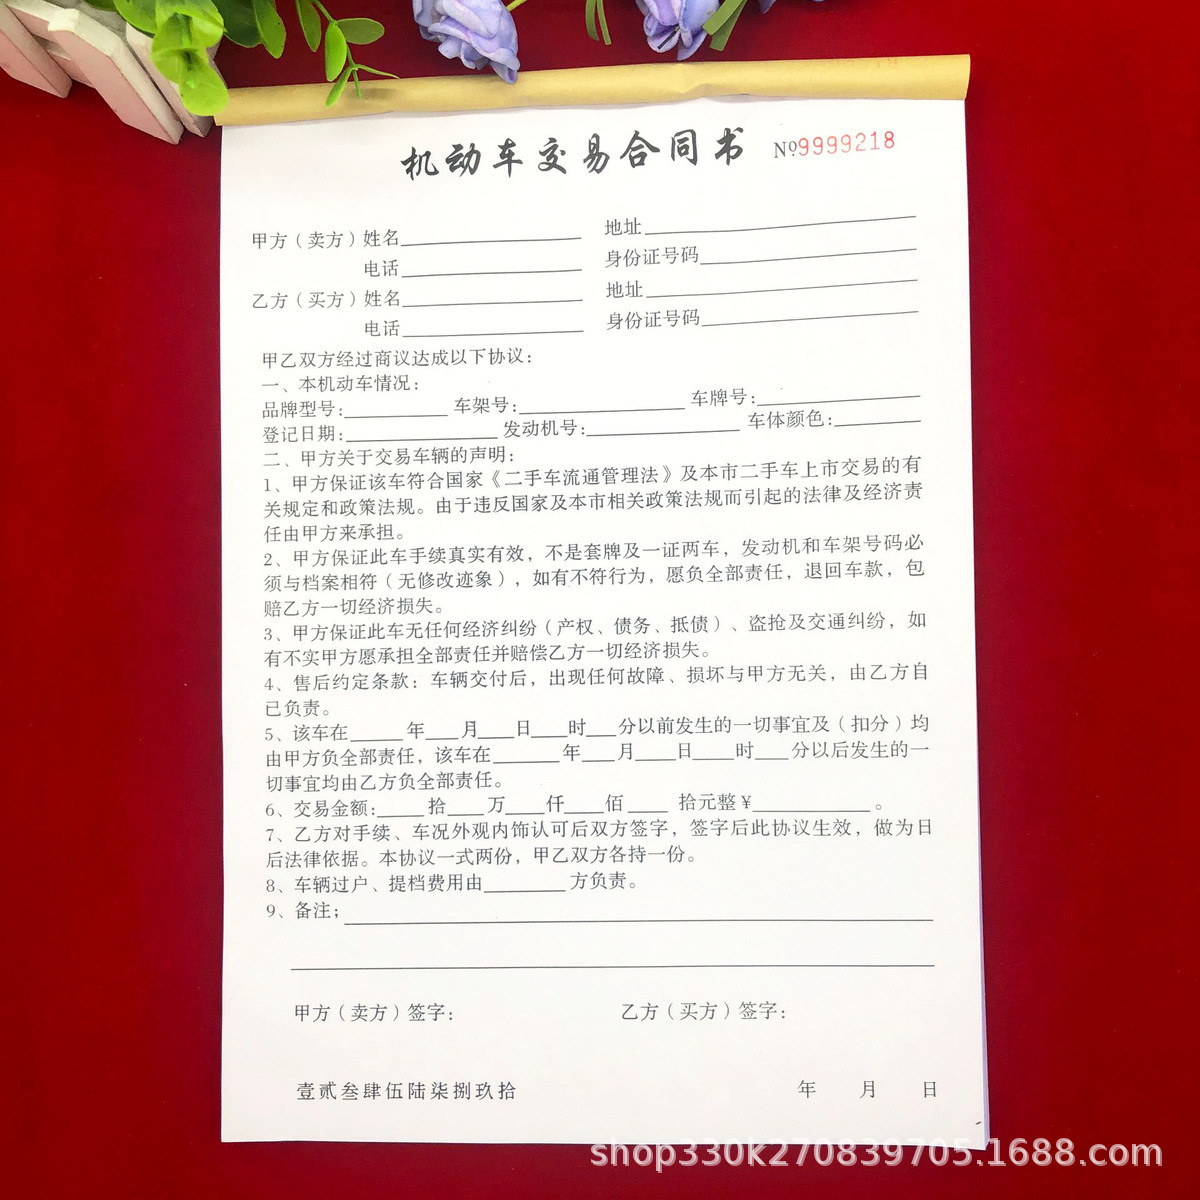 机动车交易合同书 №9999218
甲方（卖方）姓名 地址
电话 身份证号码
乙方（买方）姓名 地址
电话 身份证号码
甲乙双方经过商议达成以下协议：
一、本机动车情况：
品牌型号： 车架号： 车牌号：
登记日期： 发动机号： 车体颜色：
二、甲方关于交易车辆的声明：
1、甲方保证该车符合国家《二手车流通管理法》及本市二手车上市交易的有
关规定和政策法规。由于违反国家及本市相关政策法规而引起的法律及经济责
任由甲方来承担。
2、甲方保证此车手续真实有效，不是套牌及一证两车，发动机和车架号码必
须与档案相符（无修改迹象），如有不符行为，愿负全部责任，退回车款，包
赔乙方一切经济损失。
3、甲方保证此车无任何经济纠纷（产权、债务、抵债）、盗抢及交通纠纷，如
有不实甲方愿承担全部责任并赔偿乙方一切经济损失。
4、售后约定条款：车辆交付后，出现任何故障、损坏与甲方无关，由乙方自
已负责。
5、该车在____年____月____日____时____分以前发生的一切事宜及（扣分）均
由甲方负全部责任，该车在____年____月____日____时____分以后发生的一
切事宜均由乙方负全部责任。
6、交易金额：____拾____万____仟____佰____拾元整￥____。
7、乙方对手续、车况外观内饰认可后双方签字，签字后此协议生效，做为日
后法律依据。本协议一式两份，甲乙双方各持一份。
8、车辆过户、提档费用由____方负责。
9、备注；
甲方（卖方）签字： 乙方（买方）签字：
壹贰叁肆伍陆柒捌玖拾 年 月 日
shop330k270839705.1688.com